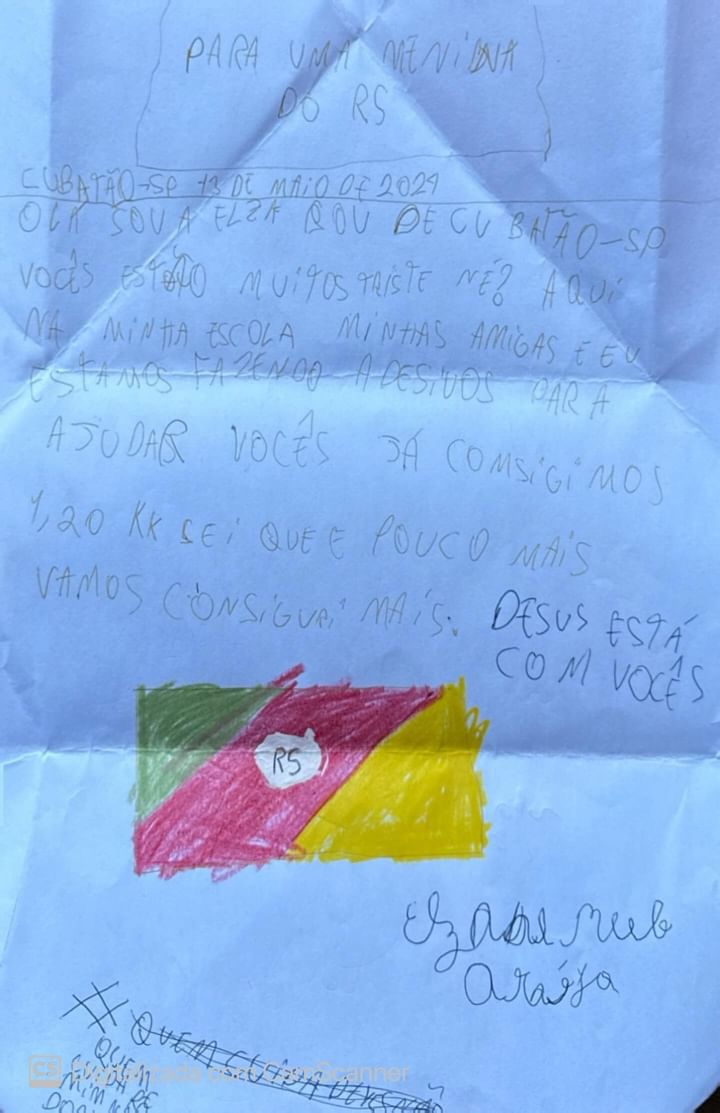 PARA UMA MENINA
DO RS
CUBATÃO-SP 13 DE MAIO DE 2024
OLÁ SOU A ELZA SOU DE CUBATÃO-SP
VOCÊS ESTÃO MUITOS TRISTE NÉ? AQUI
NA MINHA ESCOLA MINHAS AMIGAS E EU
ESTAMOS FAZENDO ADESIVOS PARA
AJUDAR VOCÊS JÁ COMSIGIMOS
1,20 KK SEI QUE E POUCO MAIS
VAMOS CONSIGURI MAIS. DESUS ESTÁ
COM VOCÊS
RS
Araúja
# QUEM
QUEM
CS Digitalizada com CamScanner